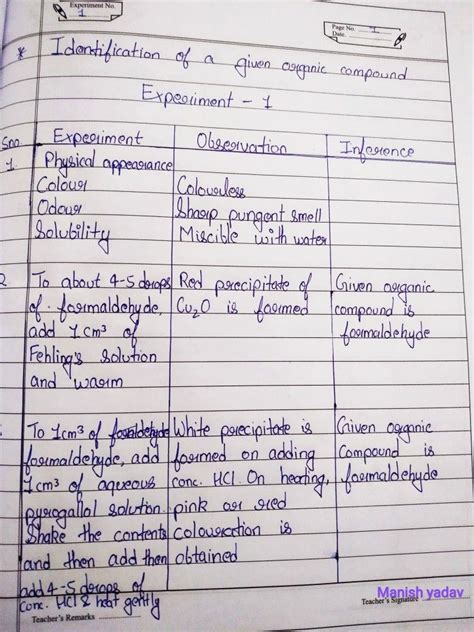 Experiment No.
1
Page No. 1
Date.
* Identification of a given organic compound
Experiment - 1
Sno
Experiment
Observation
Inference
1.
Physical appearance
Colour
Colourless
Odour
Sharp pungent smell
Solubility
Miscible with water
2
To about 4-5 drops
of formaldehyde,
add 1cm³ of
Fehling's solution
and warm
Red precipitate of
Cu₂O is formed
Given organic
compound is
formaldehyde
To 1cm³ of
formaldehyde, add
1cm³ of aqueous
pyrogallol solution.
Shake the contents
and then add then
add 4-5 drops of
conc. HCl & heat gently
White precipitate is
formed on adding
conc. HCl. On heating,
pink or red
colouration is
obtained
Given organic
Compound is
formaldehyde
Manish yadav
Teacher's Signature
Teacher's Remarks